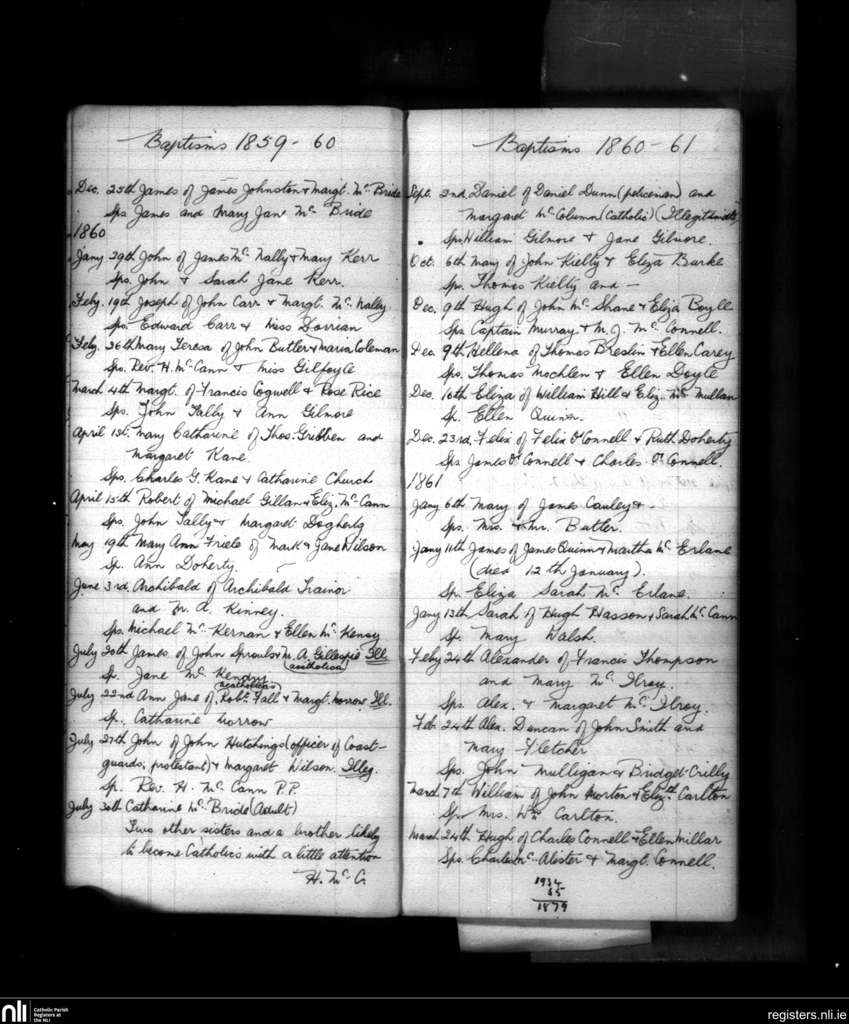 Baptisms 1859-60
Dec. 25th James of James Johnston & Margt. Mc Bride
Sps James and Mary Jane Mc Bride
1860
Jany 29th John of James Mc Nally & Mary Kerr
Sps. John & Sarah Jane Kerr.
Feby. 19th Joseph of John Carr & Margt. Mc Nally
Sps. Edward Carr & Miss Dorrian
Feby. 26th Mary Teresa of John Butler & Maria Coleman
Sps. Rev. H. McCann & Miss Gilfoyle
March 4th Margt. of Francis Cogwell & Rose Rice
Sps. John Tally & Ann Gilmore
April 1st. Mary Catharine of Thos. Gribben and
Margaret Kane.
Sps. Charles G. Kane & Catharine Church
April 15th Robert of Michael Gillan & Eliz. McCann
Sps. John Tally & Margaret Dogherty
May 19th Mary Ann Friele of Mark & Jane Wilson
Sp. Ann Doherty.
June 3rd. Archibald of Archibald Trainor
and M. A. Kinney.
Sps. Michael Mc Kernan & Ellen Mc
July 20th James of John Sproul & M. A. Gillespie Ill
(acatholica)
Sp. Jane Mc Kendry
(acatholicas)
July 22nd Ann Jane of Robt. Fall & Margt. Morrow Ill.
Sp. Catharine Morrow
July 27th John of John Hutchings (officer of Coast-
guards, protestant) & Margaret Wilson. Illeg.
Sp. Rev. H. McCann P.P.
July 30th Catharine McBride (Adult)
Two other sisters and a brother likely
to become Catholics with a little attention
H. McC.
Baptisms 1860-61
Sept. 2nd. Daniel of Daniel Dunn (policeman) and
Margaret McColumn (catholic) (Illegitimate)
Sps William Gilmore & Jane Gilmore.
Oct. 6th Mary of John Kielty & Eliza Burke
Sp. Thomas Kielty and —
Dec. 9th Hugh of John Mc Shane & Eliza Boyle
Sps Captain Murray & M. J. Mc Connell.
Dec 9th Hellena of Thomas Breslin & Ellen Carey
Sps. Thomas & Ellen Doyle
Dec. 16th Eliza of William Hill & Eliz. Mc Mullan
Sp. Ellen Quinn.
Dec. 23rd. Felix of Felix O'Connell & Ruth Doherty
Sps James O'Connell & Charles O'Connell.
1861
Jany 6th Mary of James Cauley & -
Sps. Mrs. & Mr. Butler.
Jany 11th James of James Quinn & Martha Mc Erlane
(died 12th January).
Sp. Eliza Sarah Mc Erlane.
Jany 13th Sarah of Hugh Hasson & Sarah McCann
Sp. Mary Walsh.
Feby 24th Alexander of Francis Thompson
and Mary Mc Ilroy.
Sps. Alex. & Margaret Mc Ilroy.
Feb. 24th Alex. Duncan of John Smith and
Mary Fletcher
Sps. John Mulligan & Bridget Crilly
March 7th William of John Morton & Elizth Carlton
Sp. Mrs. Wm. Carlton.
March 24th Hugh of Charles Connell & Ellen Millar
Sps. Charles Mc Alister & Margt. Connell.
1934
55
1879
nli
Catholic Parish
Registers at
the NLI
registers.nli.ie